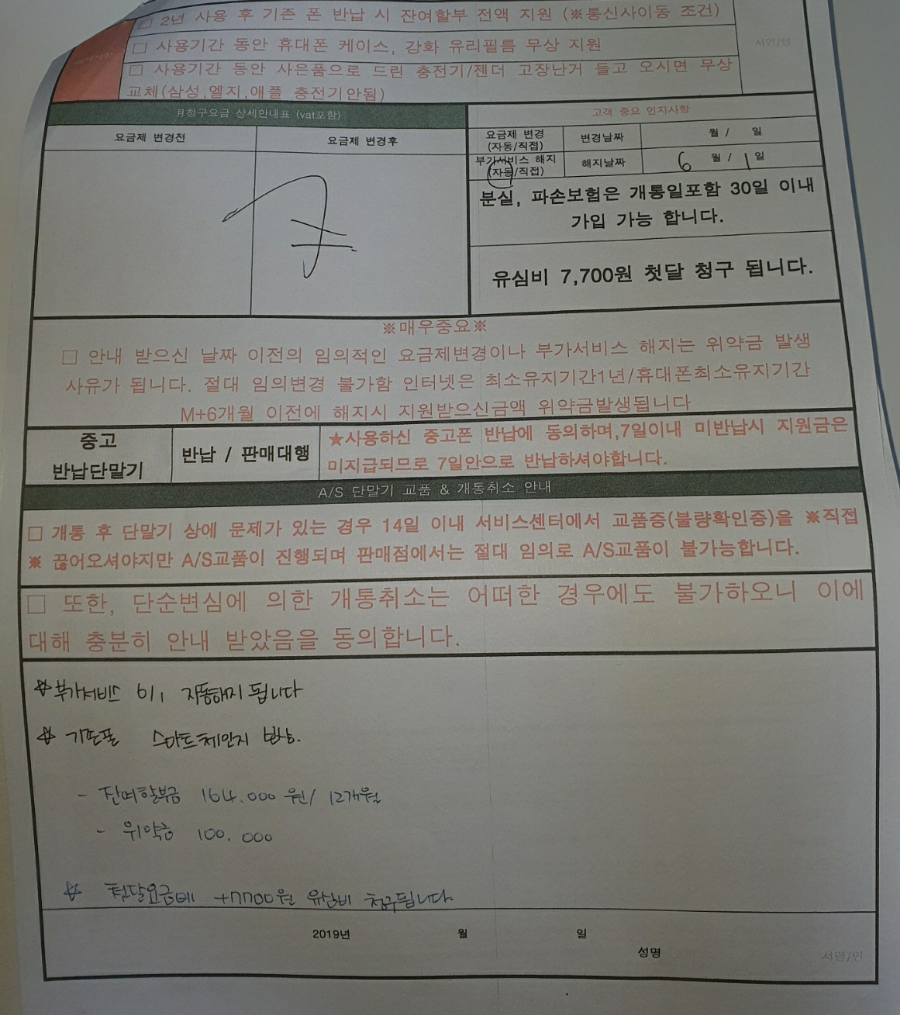 □ 2년 사용 후 기존 폰 반납 시 잔여할부 전액 지원 (※통신사이동 조건)
□ 사용기간 동안 휴대폰 케이스, 강화 유리필름 무상 지원
서명/인
□ 사용기간 동안 사은품으로 드린 충전기/젠더 고장난거 들고 오시면 무상
교체(삼성,엘지,애플 충전기안됨)
月청구요금 상세안내표 (vat포함)
고객 중요 인지사항
요금제 변경전
요금제 변경후
요금제 변경
(자동/직접)
변경날짜
월 / 일
부가서비스 해지
(자동/직접)
해지날짜
6 월 / 1 일
분실, 파손보험은 개통일포함 30일 이내
가입 가능 합니다.
유심비 7,700원 첫달 청구 됩니다.
※매우중요※
□ 안내 받으신 날짜 이전의 임의적인 요금제변경이나 부가서비스 해지는 위약금 발생
사유가 됩니다. 절대 임의변경 불가함 인터넷은 최소유지기간1년/휴대폰최소유지기간
M+6개월 이전에 해지시 지원받으신금액 위약금발생됩니다
중고
반납단말기
반납 / 판매대행
★사용하신 중고폰 반납에 동의하며,7일이내 미반납시 지원금은
미지급되므로 7일안으로 반납하셔야합니다.
A/S 단말기 교품 & 개통취소 안내
□ 개통 후 단말기 상에 문제가 있는 경우 14일 이내 서비스센터에서 교품증(불량확인증)을 ※직접
※ 끊어오셔야지만 A/S교품이 진행되며 판매점에서는 절대 임의로 A/S교품이 불가능합니다.
□ 또한, 단순변심에 의한 개통취소는 어떠한 경우에도 불가하오니 이에
대해 충분히 안내 받았음을 동의합니다.
☆부가서비스 6/1 자동해지 됩니다
☆ 기존폰 스마트체인지 반납.
- 잔여할부금 164.000원/ 12개월
- 위약금 100.000
☆ 첫달요금에 +7700원 유심비 청구됩니다
2019년 월 일
성명
서명/인